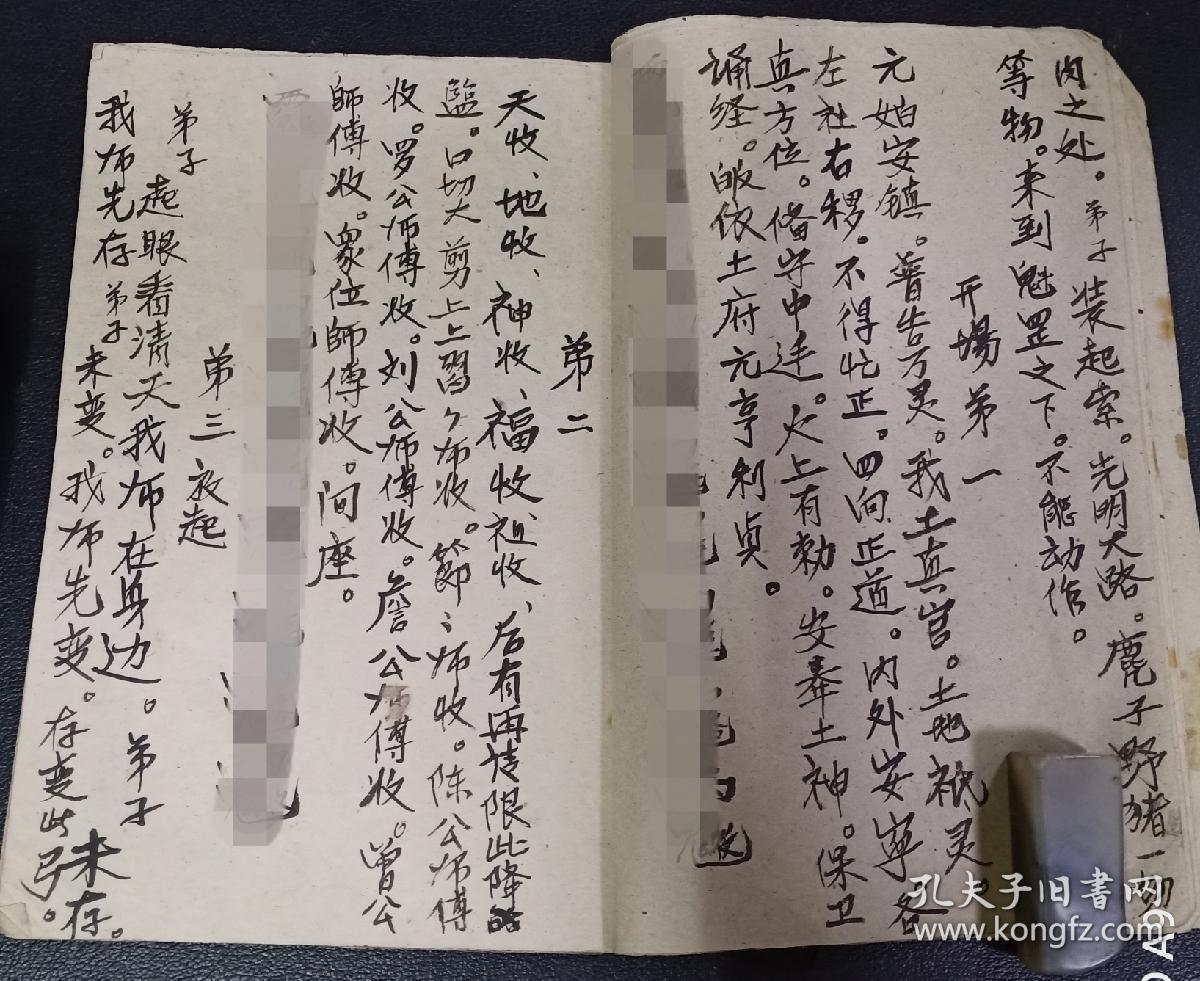 肉之处。弟子装起索。光明大路。鹿子野猪一切
等物。来到魁罡之下。不能动作。
开場弟一
元始安镇。普告万灵。我土真官。土地祇灵。
左社右稷。不得忙正。四向正道。内外安寧各
真方位。俻守中迋。火上有勅。安奉土神。保卫
诵经。皈依土府元亨利貞。
弟二
天收、地收、神收、福收、祖收、后有再 限此降
监。口切大剪上上習々师收。節〻师收。陈公师傅
收。罗公师傅收。刘公师傅收。詹公师傅收。曾公
師傅收。眾位師傅收。间座。
弟三 起
弟子起眼看清天我师在身边。弟子
我师先存弟子未变。我师先变。存变此弓。
未存。
孔夫子旧书网
www.kongfz.com